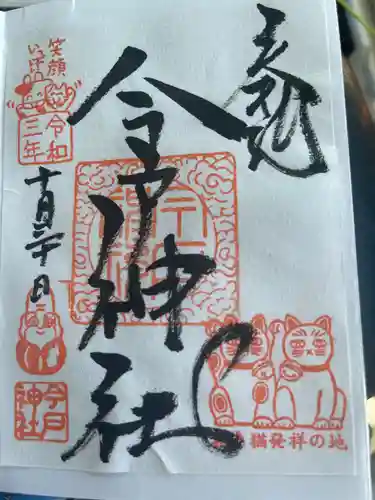 奉拝
今戸神社
笑顔
いっぱい
令和
三年
十月三十日
今戸
神社
招き猫発祥の地